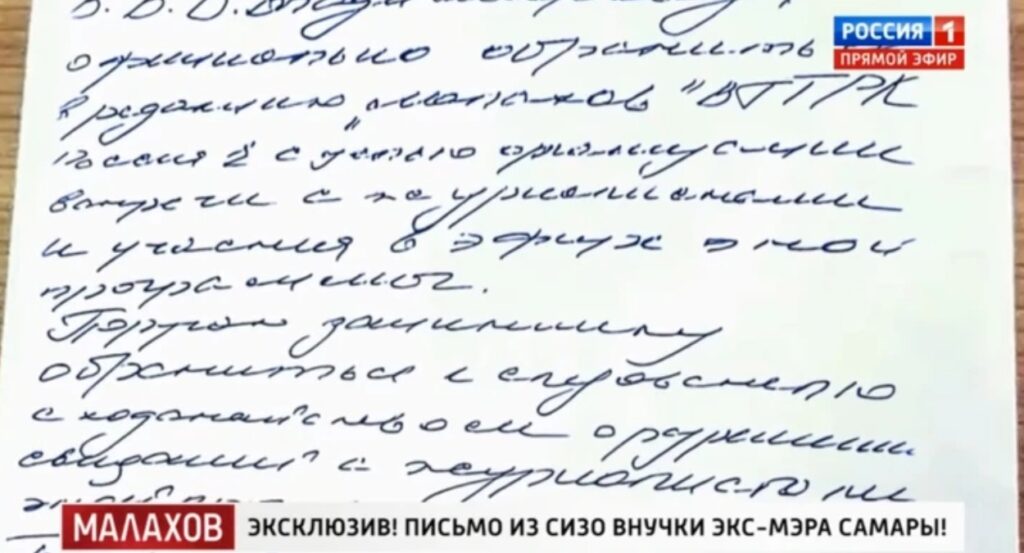 официально обратиться
в редакцию „Малахов" ВГТРК
Россия 1 с целью организации
встречи с журналистами
и участия в эфирах этой
программы.
Поручаю защитнику
обратиться к следователю
с ходатайством о разрешении
свиданий с журналистами
РОССИЯ 1
ПРЯМОЙ ЭФИР
МАЛАХОВ
ЭКСКЛЮЗИВ! ПИСЬМО ИЗ СИЗО ВНУЧКИ ЭКС-МЭРА САМАРЫ!